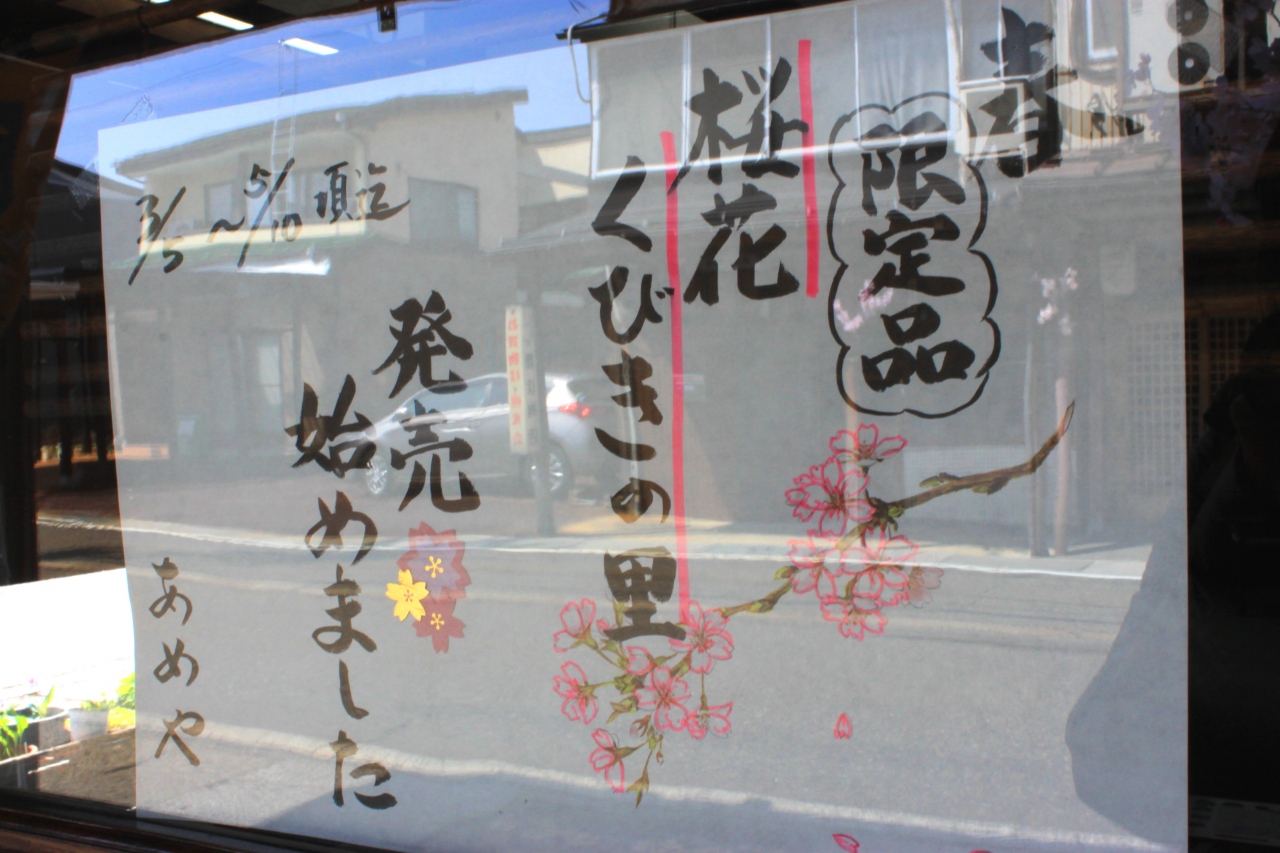 春
限定品
桜花
くびきの里
発売
始めました
3/5～5/10頃迄
あめや